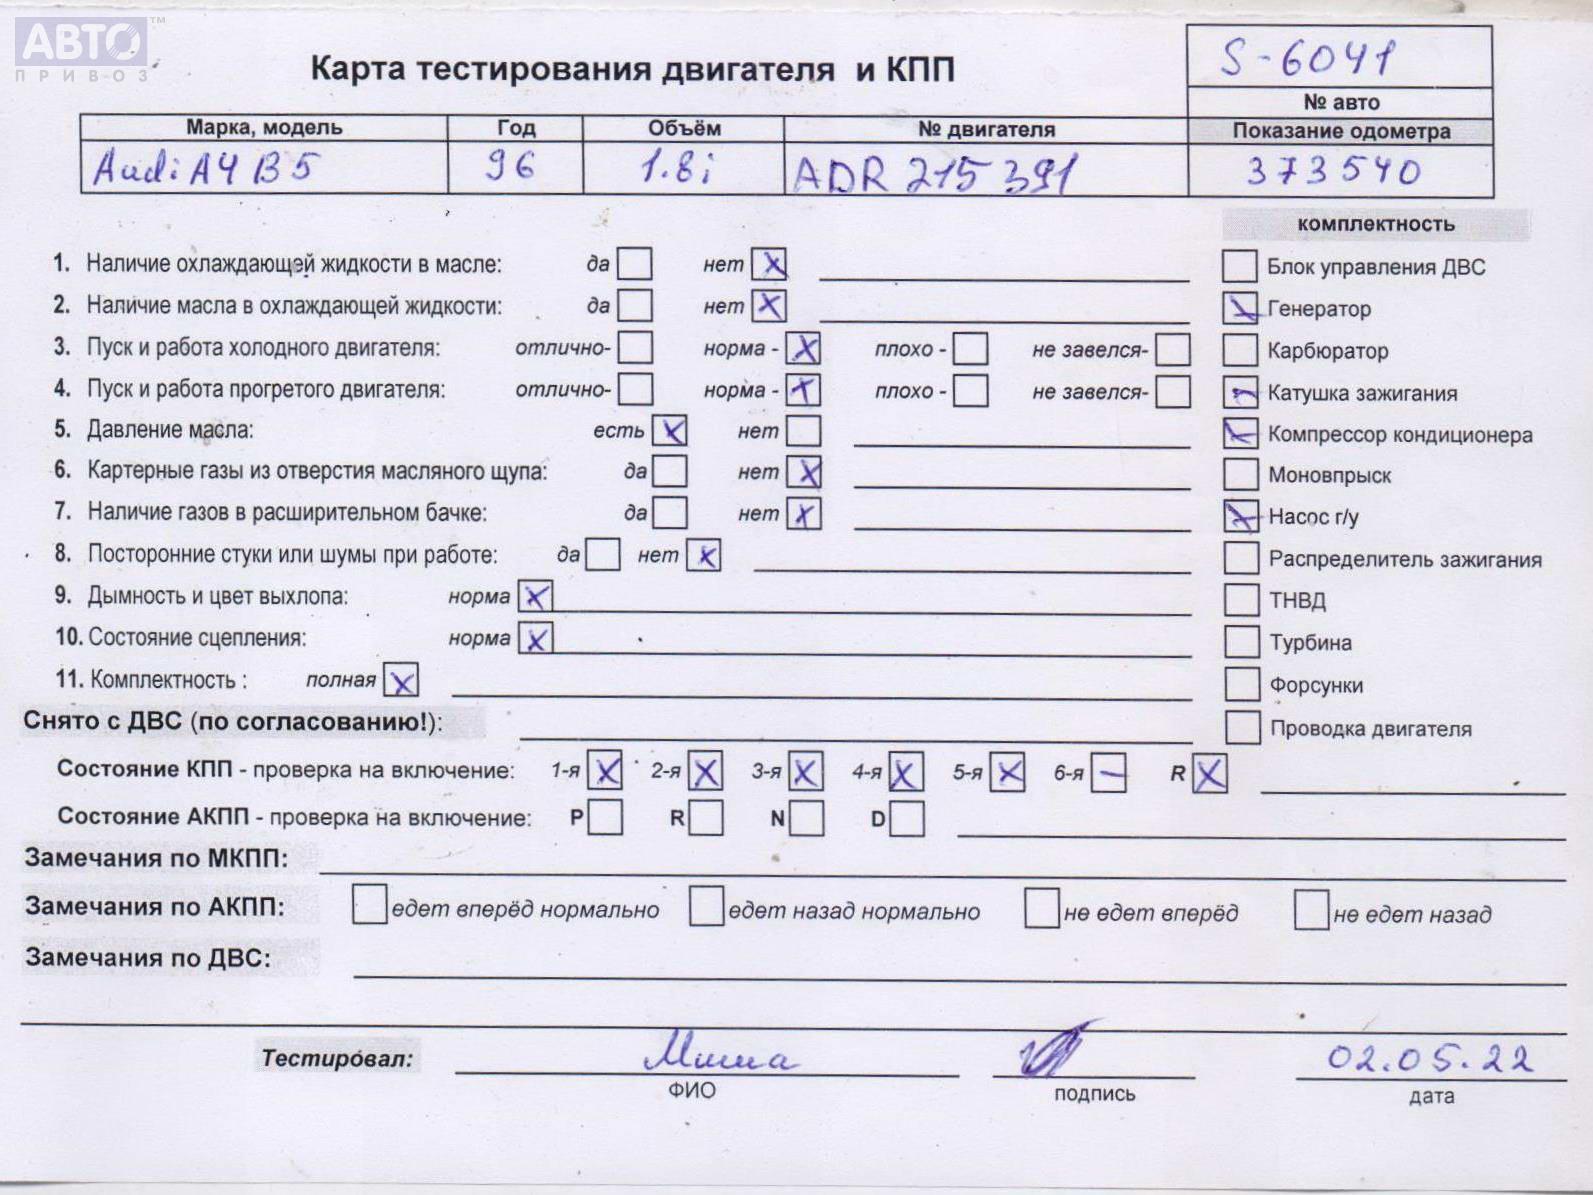 АВТО™
ПРИВОЗ
Карта тестирования двигателя и КПП
S-6041
№ авто
Марка, модель Год Объём № двигателя Показание одометра
Audi A4 B5 96 1.8i ADR 215391 373540
комплектность
1. Наличие охлаждающей жидкости в масле: да нет X
Блок управления ДВС
2. Наличие масла в охлаждающей жидкости: да нет X
Генератор
3. Пуск и работа холодного двигателя: отлично- норма - X плохо - не завелся-
Карбюратор
4. Пуск и работа прогретого двигателя: отлично- норма - X плохо - не завелся-
Катушка зажигания
5. Давление масла: есть X нет
Компрессор кондиционера
6. Картерные газы из отверстия масляного щупа: да нет X
Моновпрыск
7. Наличие газов в расширительном бачке: да нет X
Насос г/у
8. Посторонние стуки или шумы при работе: да нет X
Распределитель зажигания
9. Дымность и цвет выхлопа: норма X
ТНВД
10. Состояние сцепления: норма X
Турбина
11. Комплектность : полная X
Форсунки
Снято с ДВС (по согласованию!):
Проводка двигателя
Состояние КПП - проверка на включение: 1-я X 2-я X 3-я X 4-я X 5-я X 6-я – R X
Состояние АКПП - проверка на включение: P R N D
Замечания по МКПП:
Замечания по АКПП: едет вперёд нормально едет назад нормально не едет вперёд не едет назад
Замечания по ДВС:
Тестировал: Миша 02.05.22
ФИО подпись дата